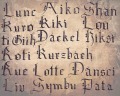 Lunc Aiko Shan
Kuro Kiki Lou
Dackel
Kofi Kurzbach
Rue Lotte Dansei
Liv Symbu Data